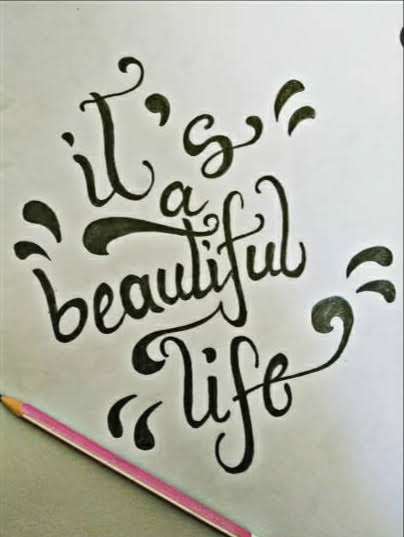 it's
a
beautiful
life